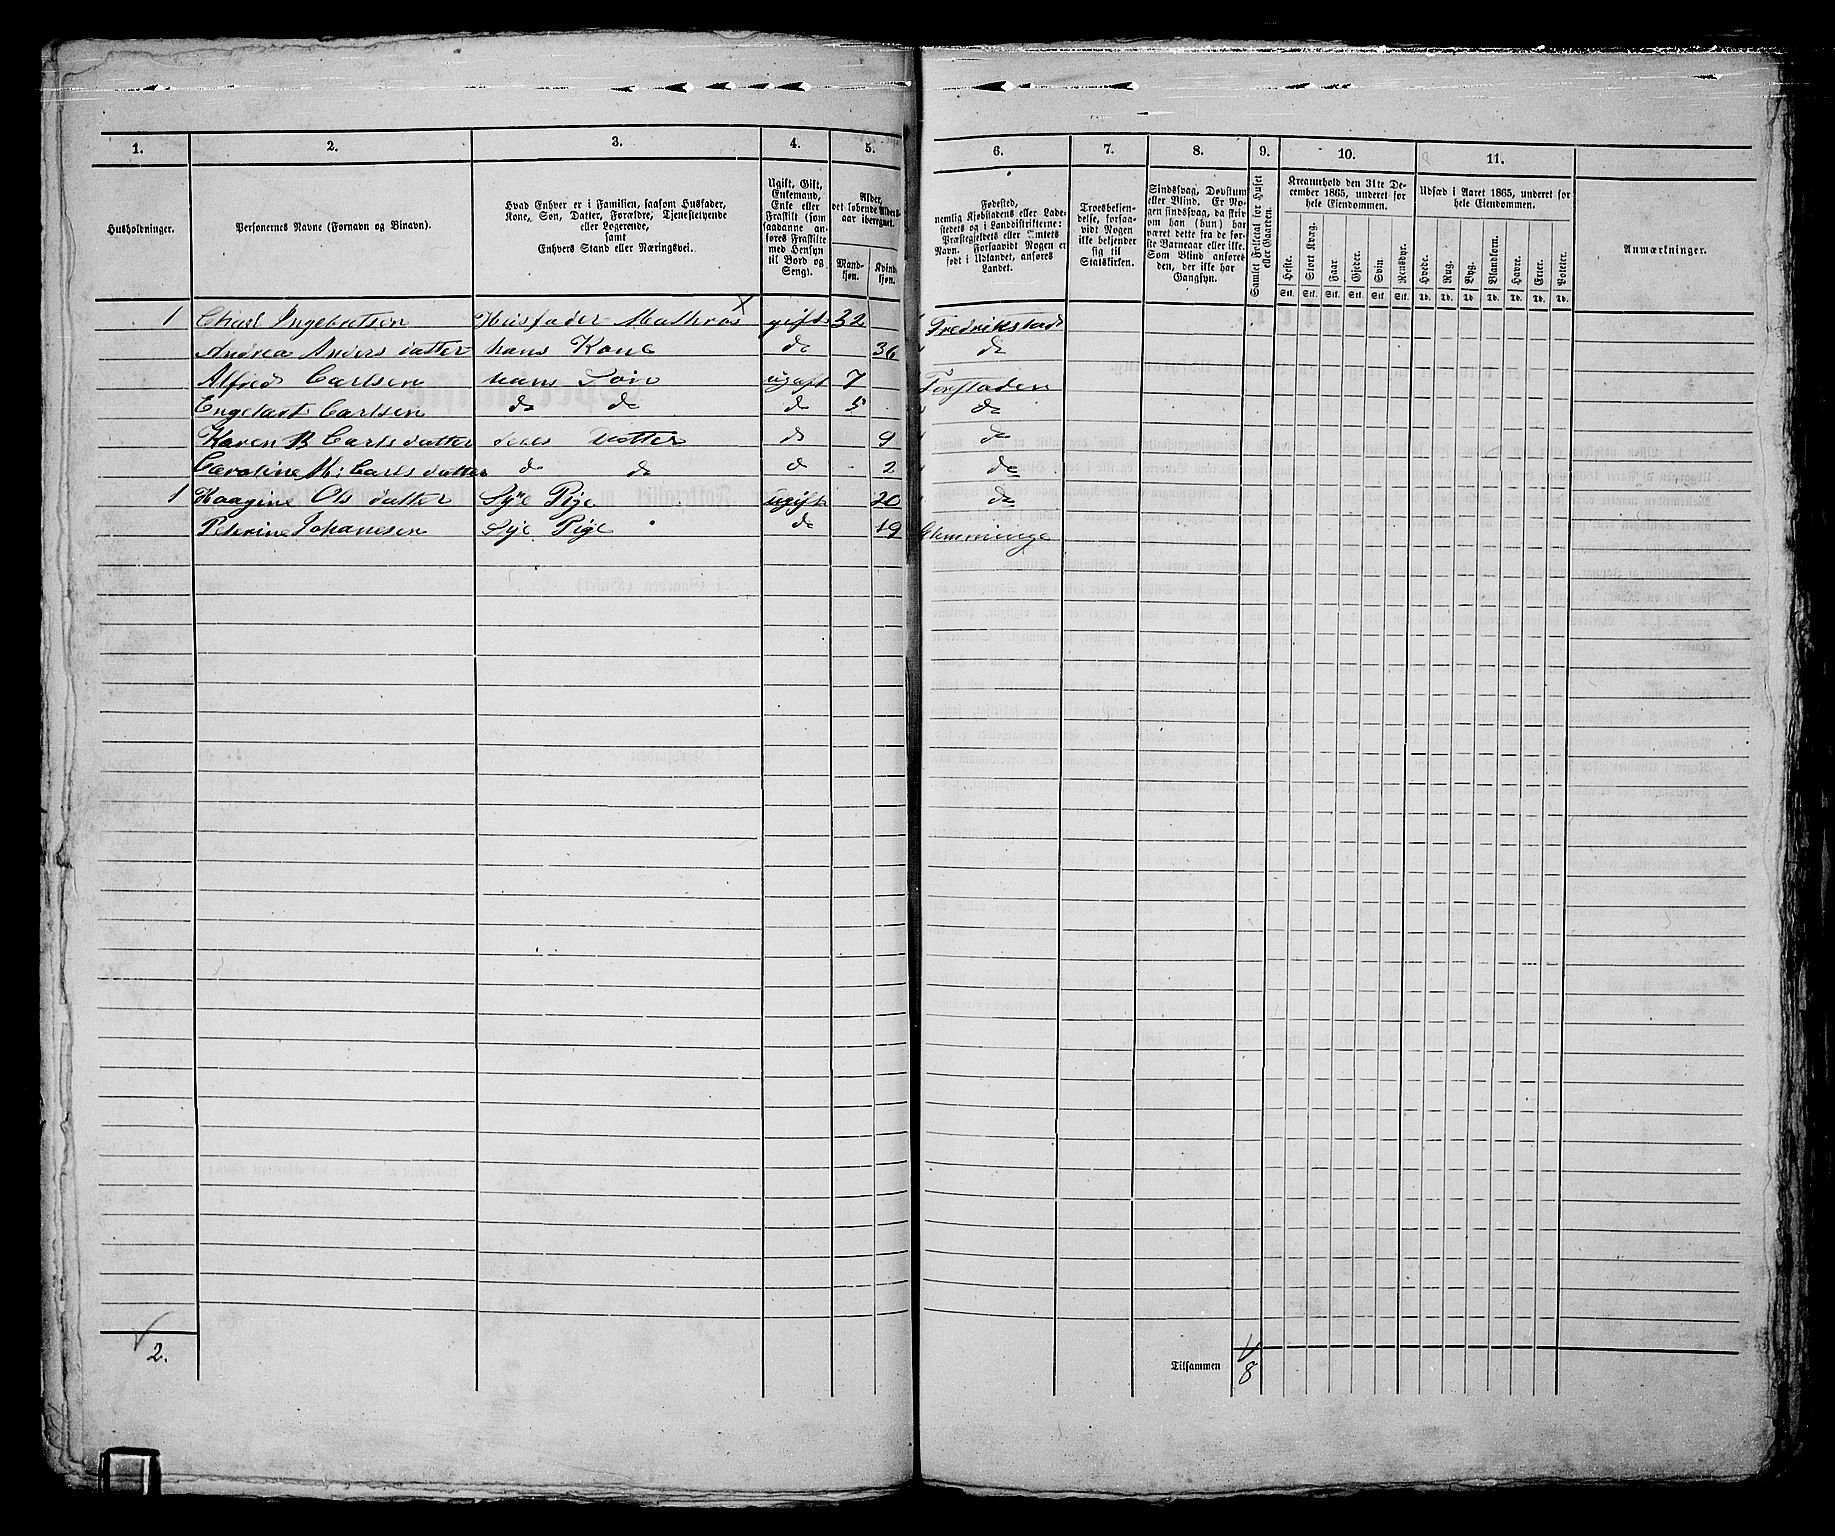 1. 2. 3. 4. 5. 6. 7. 8. 9. 10. 11.
Husholdninger.
Personernes Navne (Fornavn og Binavn).
Hvad Enhver er i Familien, saasom Husfader,
Kone, Søn, Datter, Forældre, Tjenestetyende
eller Logerende,
samt
Enhvers Stand eller Næringsvei.
Ugift, Gift,
Enkemand,
Enke eller
Fraskilt (som
saadanne an-
føres Fraskilte
med Hensyn
til Bord og
Seng).
Alder,
det løbende Alders-
aar iberegnet.
Mand-
kjøn.
Kvind-
kjøn.
Fødested,
nemlig Kjøbstadens eller Lade-
stedets og i Landdistrikterne:
Præstegjeldets eller Amtets
Navn. Forsaavidt Nogen er
født i Udlandet, anføres
Landet.
Troesbekjen-
delse, forsaa-
vidt Nogen
ikke bekjender
sig til
Statskirken.
Sindssvag, Døvstum
eller Blind. Er No-
gen sindssvag, da skriv
om han (hun) har
været dette fra de før-
ste Barneaar eller ikke.
Som Blind anføres
den, der ikke har
Gangsyn.
Samlet Folketal for Huset
eller Gaarden.
Kreaturhold den 31te De-
cember 1865, underet for
hele Eiendommen.
Heste. Stort Kvæg. Faar. Gjeder. Svin. Rensdyr.
Stk. Stk. Stk. Stk. Stk. Stk.
Udsæd i Aaret 1865, underet for
hele Eiendommen.
Hvede. Rug. Byg. Blandkorn. Havre. Erter. Poteter.
Td. Td. Td. Td. Td. Td. Td.
Anmærkninger.
1 Carl Ingebretsen Husfader Mathros gift 32 Fredrikstad
Andrea Anders datter hans Kone do 36 do
Alfred Carlsen hans Søn ugift 7 Forstaden
Engelast Carlsen do do do 5 do
Karen B Carls datter deres Datter do 9 do
Caroline M: Carls datter do do do 2 do
1 Kaagine Ols datter Sye Pige ugift 20 do
Peterine Johannesen Sye Pige do 19 Glemminge
2.
Tilsammen 8